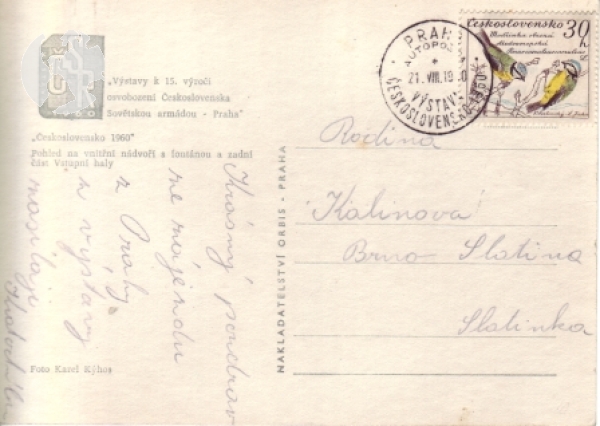 ČSR
1960
„Výstavy k 15. výročí
osvobození Československa
Sovětskou armádou - Praha"
„Československo 1960"
Pohled na vnitřní nádvoří s fontánou a zadní
část Vstupní haly
Krásný pozdrav
z Prahy
z výstavy
Foto Karel Kýhos
NAKLADATELSTVÍ ORBIS - PRAHA
PRAHA
AUTOPOŠTA
21.VIII.19 0
VÝSTAVA
ČESKOSLOVENSKO 1960
Československo 30 h
Rodina
Kalinova
Brno Slatina
Slatinka